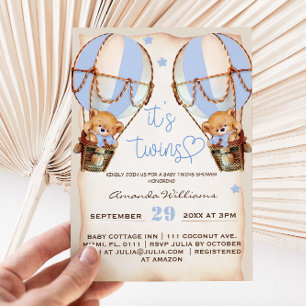 it's
twins
KINDLY JOIN US FOR A BABY TWINS SHOWER
HONORING
Amanda Williams
SEPTEMBER 29 20XX AT 3PM
BABY COTTAGE INN | 111 COCONUT AVE.
MIAMI, FL, 0111 | RSVP JULIA BY OCTOBER
AT JULIA@JULIA.COM | REGISTERED
AT AMAZON